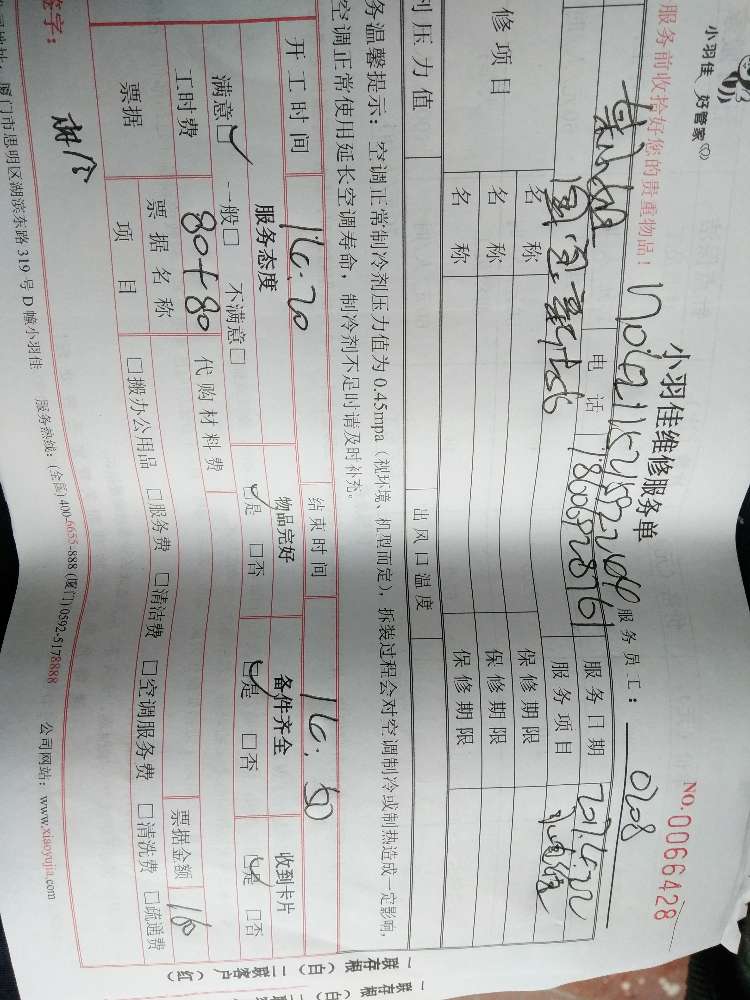 小羽佳 好管家
服务前收拾好您的贵重物品！
小羽佳维修服务单
NO.0066428
服务员工： 0208
电话 服务日期
修项目 名称 服务项目
名称 保修期限
名称 保修期限
保修期限
压力值 出风口温度
务温馨提示：空调正常制冷剂压力值为 0.45mpa（视环境、机型而定），拆装过程会对空调制冷或制热造成一定影响，
空调正常使用延长空调寿命，制冷剂不足时请及时补充。
开工时间 16:20 结束时间 16:50
服务态度 物品完好 备件齐全 收到卡片
满意☑ 一般□ 不满意□ ☑是 □否 ☑是 □否 ☑是 □否
工时费 80+80 代购材料费
票据 票据名称 票据金额 160
项目 □搬办公用品 □服务费 □清洁费 □空调服务费 □清洗费 □疏通费
签字：
厦门市思明区湖滨东路 319 号 D 幢小羽佳 服务热线：(全国)400-6655-888 (厦门)0592-5178888 公司网站：www.xiaoyujia.com
一联存根（白）二联客户（红）
一联存根（白）